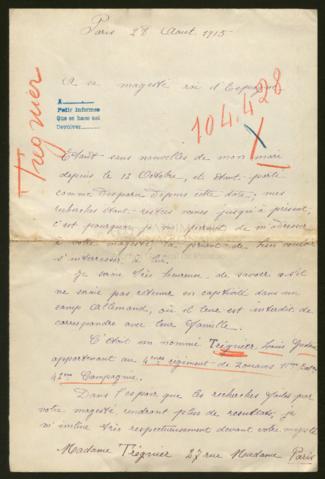 Paris 28 Aout 1915
A sa majesté roi d'Espagne
A
Pedir informes
Que se hace así
Devolver
Trégnier
104.428
X
Etant sans nouvelles de mon mari
depuis le 13 Octobre, et étant porté
comme disparu depuis cette date, mes
recherches étant restées vaines jusqu'à présent,
c'est pourquoi je me permet de m'adresser
à votre majesté, la priant de bien vouloir
s'intéresser à lui.
Je serai très heureuse de savoir s'il
ne serait pas retenu en captivité dans un
camp Allemand, où il leur est interdit de
correspondre avec leur famille.
C'était un nommé Trégnier, Louis
appartenant au 4ème régiment de Zouaves 11me Bat
42me Compagnie.
Dans l'espoir que les recherches faites par
votre majesté rendront plus de résultats, je
m'incline très respectueusement devant votre majesté
Madame Trégnier 27 rue Madame Paris